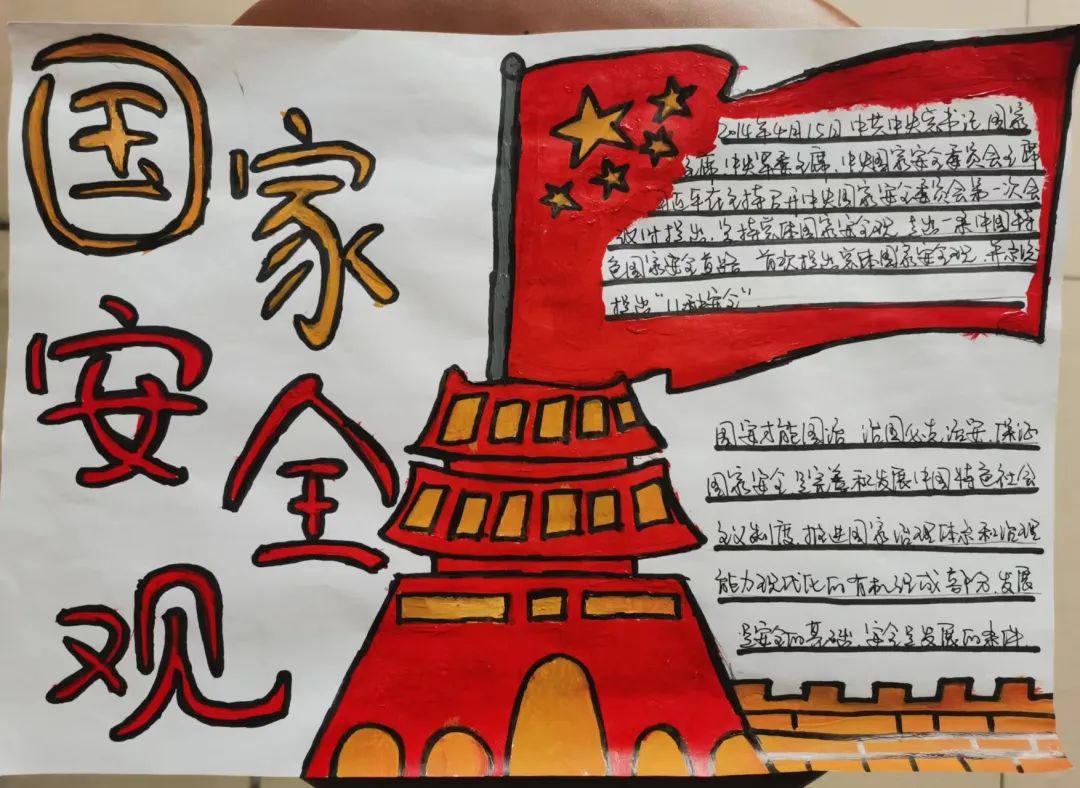 国家
安全
观
2014年4月15日 中共中央总书记 国家
主席、中央军委主席、中央国家安全委员会主席
近平在主持召开中央国家安全委员会第一次会
议时提出,坚持总体国家安全观,走出一条中国特
色国家安全道路 首次提出总体国家安全观,并系统
提出“11种安全”.
国安才能国治 治国必先治安,保证
国家安全是完善和发展中国特色社会
主义制度,推进国家治理体系和治理
能力现代化的有机组成部分,发展
是安全的基础,安全是发展的条件